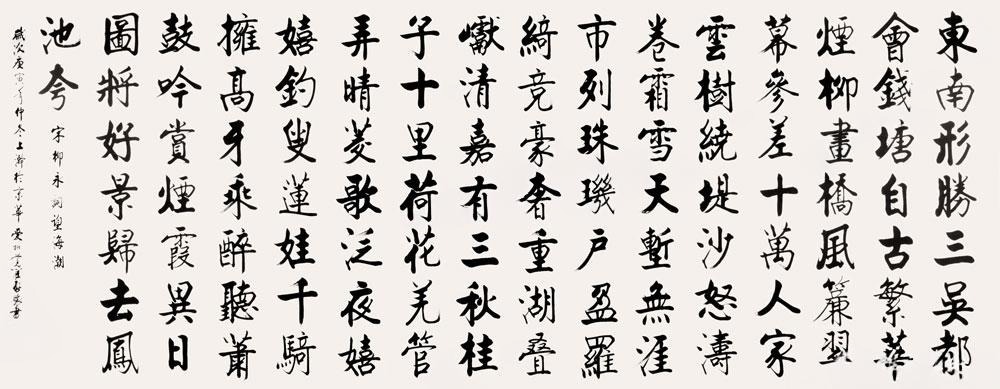 東南形勝三吳都
會錢塘自古繁華
煙柳畫橋風簾翠
幕參差十萬人家
雲樹繞堤沙怒濤
卷霜雪天塹無涯
市列珠璣戶盈羅
綺竞豪奢重湖叠
巘清嘉有三秋桂
子十里荷花羌管
弄晴菱歌泛夜嬉
嬉釣叟蓮娃千騎
擁高牙乘醉聽蕭
鼓吟賞煙霞異日
圖將好景歸去鳳
池夸
宋柳永詞望海潮
歲次庚寅年仲冬上澣於京華書